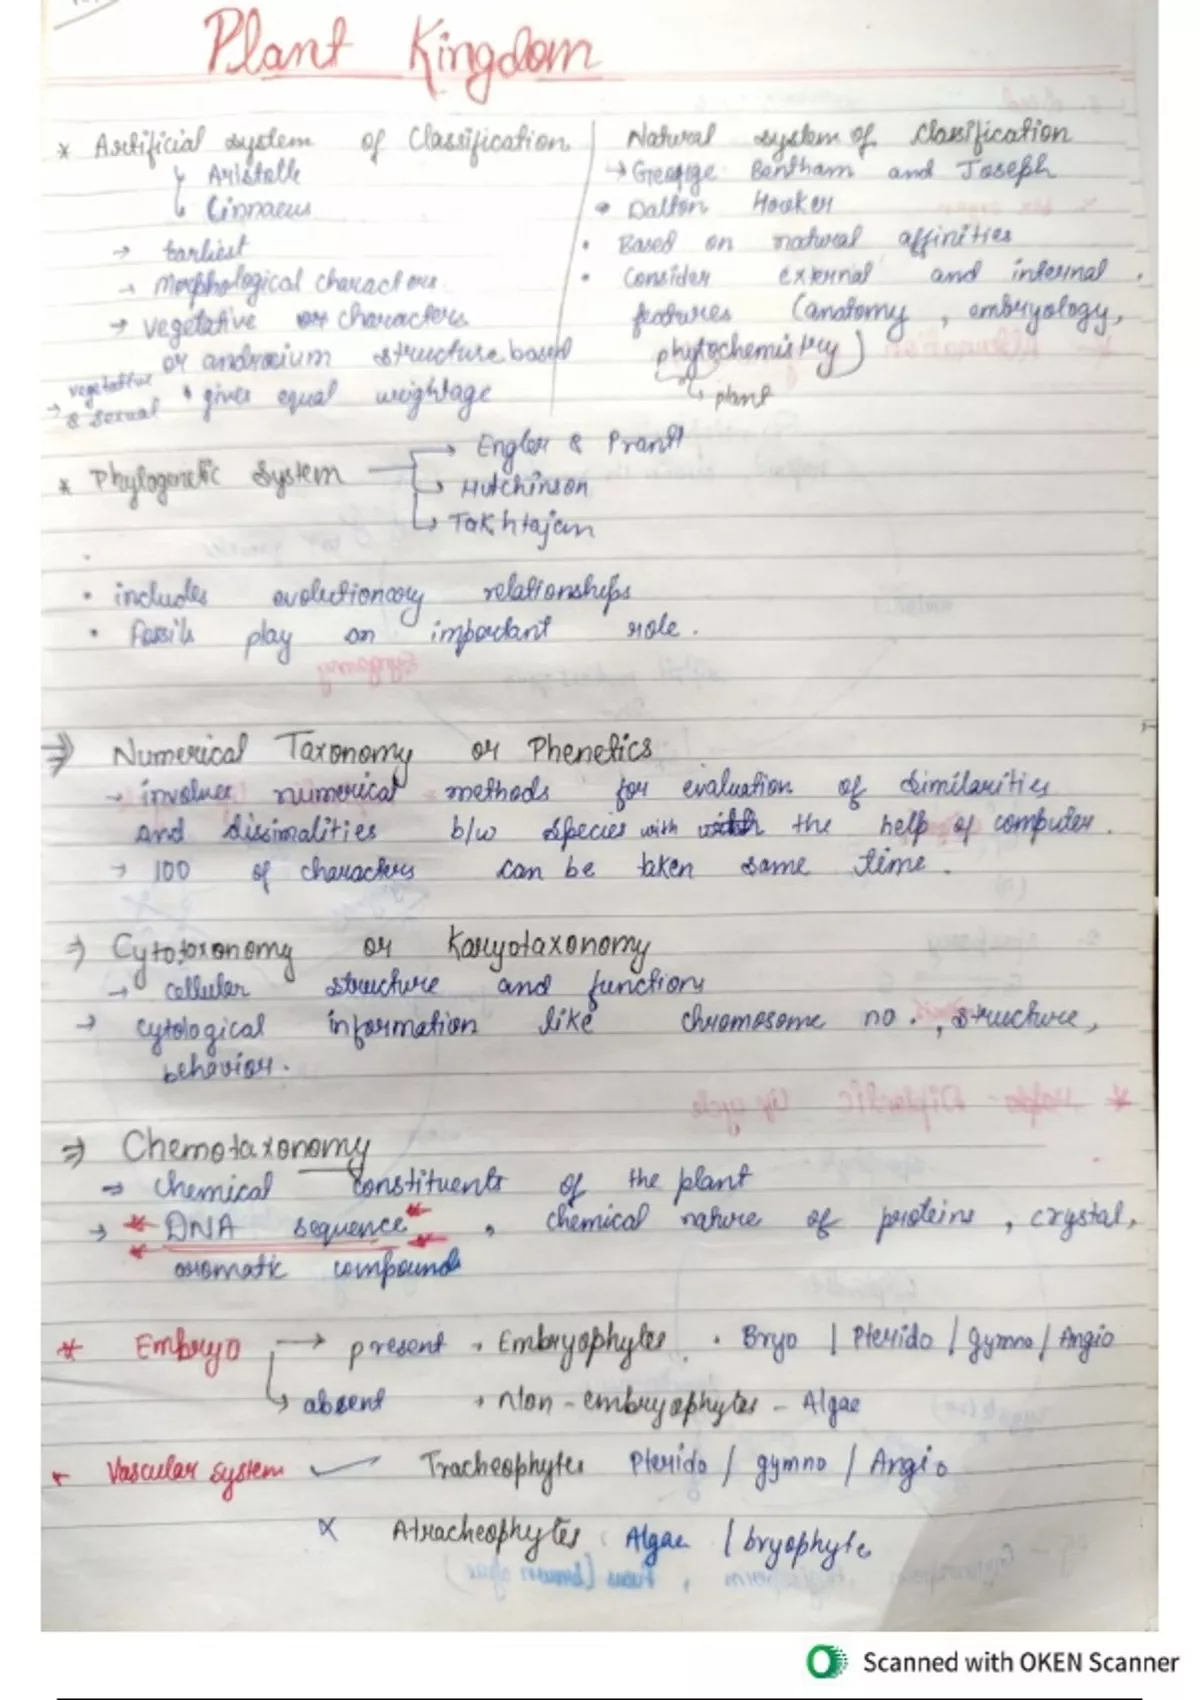 Plant Kingdom
* Artificial system of Classification
↳ Aristotle
↳ Linnaeus
→ Earliest
→ Morphological characters
→ vegetative or characters
or androcium structure based
→ vegetative & sexual • gives equal weightage
Natural system of Classification
→ George Bentham and Joseph
• Dalton Hooker
• Based on natural affinities
• Consider external and internal
features (anatomy, embryology,
phytochemistry)
↳ plant
* Phylogenetic System → Engler & Prantl
↳ Hutchinson
↳ Takhtajan
• includes evolutionary relationships
• fossils play an important role.
⇒ Numerical Taxonomy or Phenetics
→ involves numerical methods for evaluation of similarities
and dissimalities b/w species with the help of computer.
→ 100 of characters can be taken same time.
⇒ Cytotaxonomy or Karyotaxonomy
→ cellular structure and functions
→ cytological information like chromosome no., structure,
behavior.
⇒ Chemotaxonomy
⇒ chemical constituents of the plant
→ * DNA sequence * , chemical nature of proteins, crystal,
aromatic compounds
* Embryo → present → Embryophytes • Bryo / Pterido / gymno / Angio
↳ absent → Non-embryophytes - Algae
* Vascular system ✓ Tracheophytes Pterido / gymno / Angio
× Atracheophytes Algae / bryophyte
Scanned with OKEN Scanner